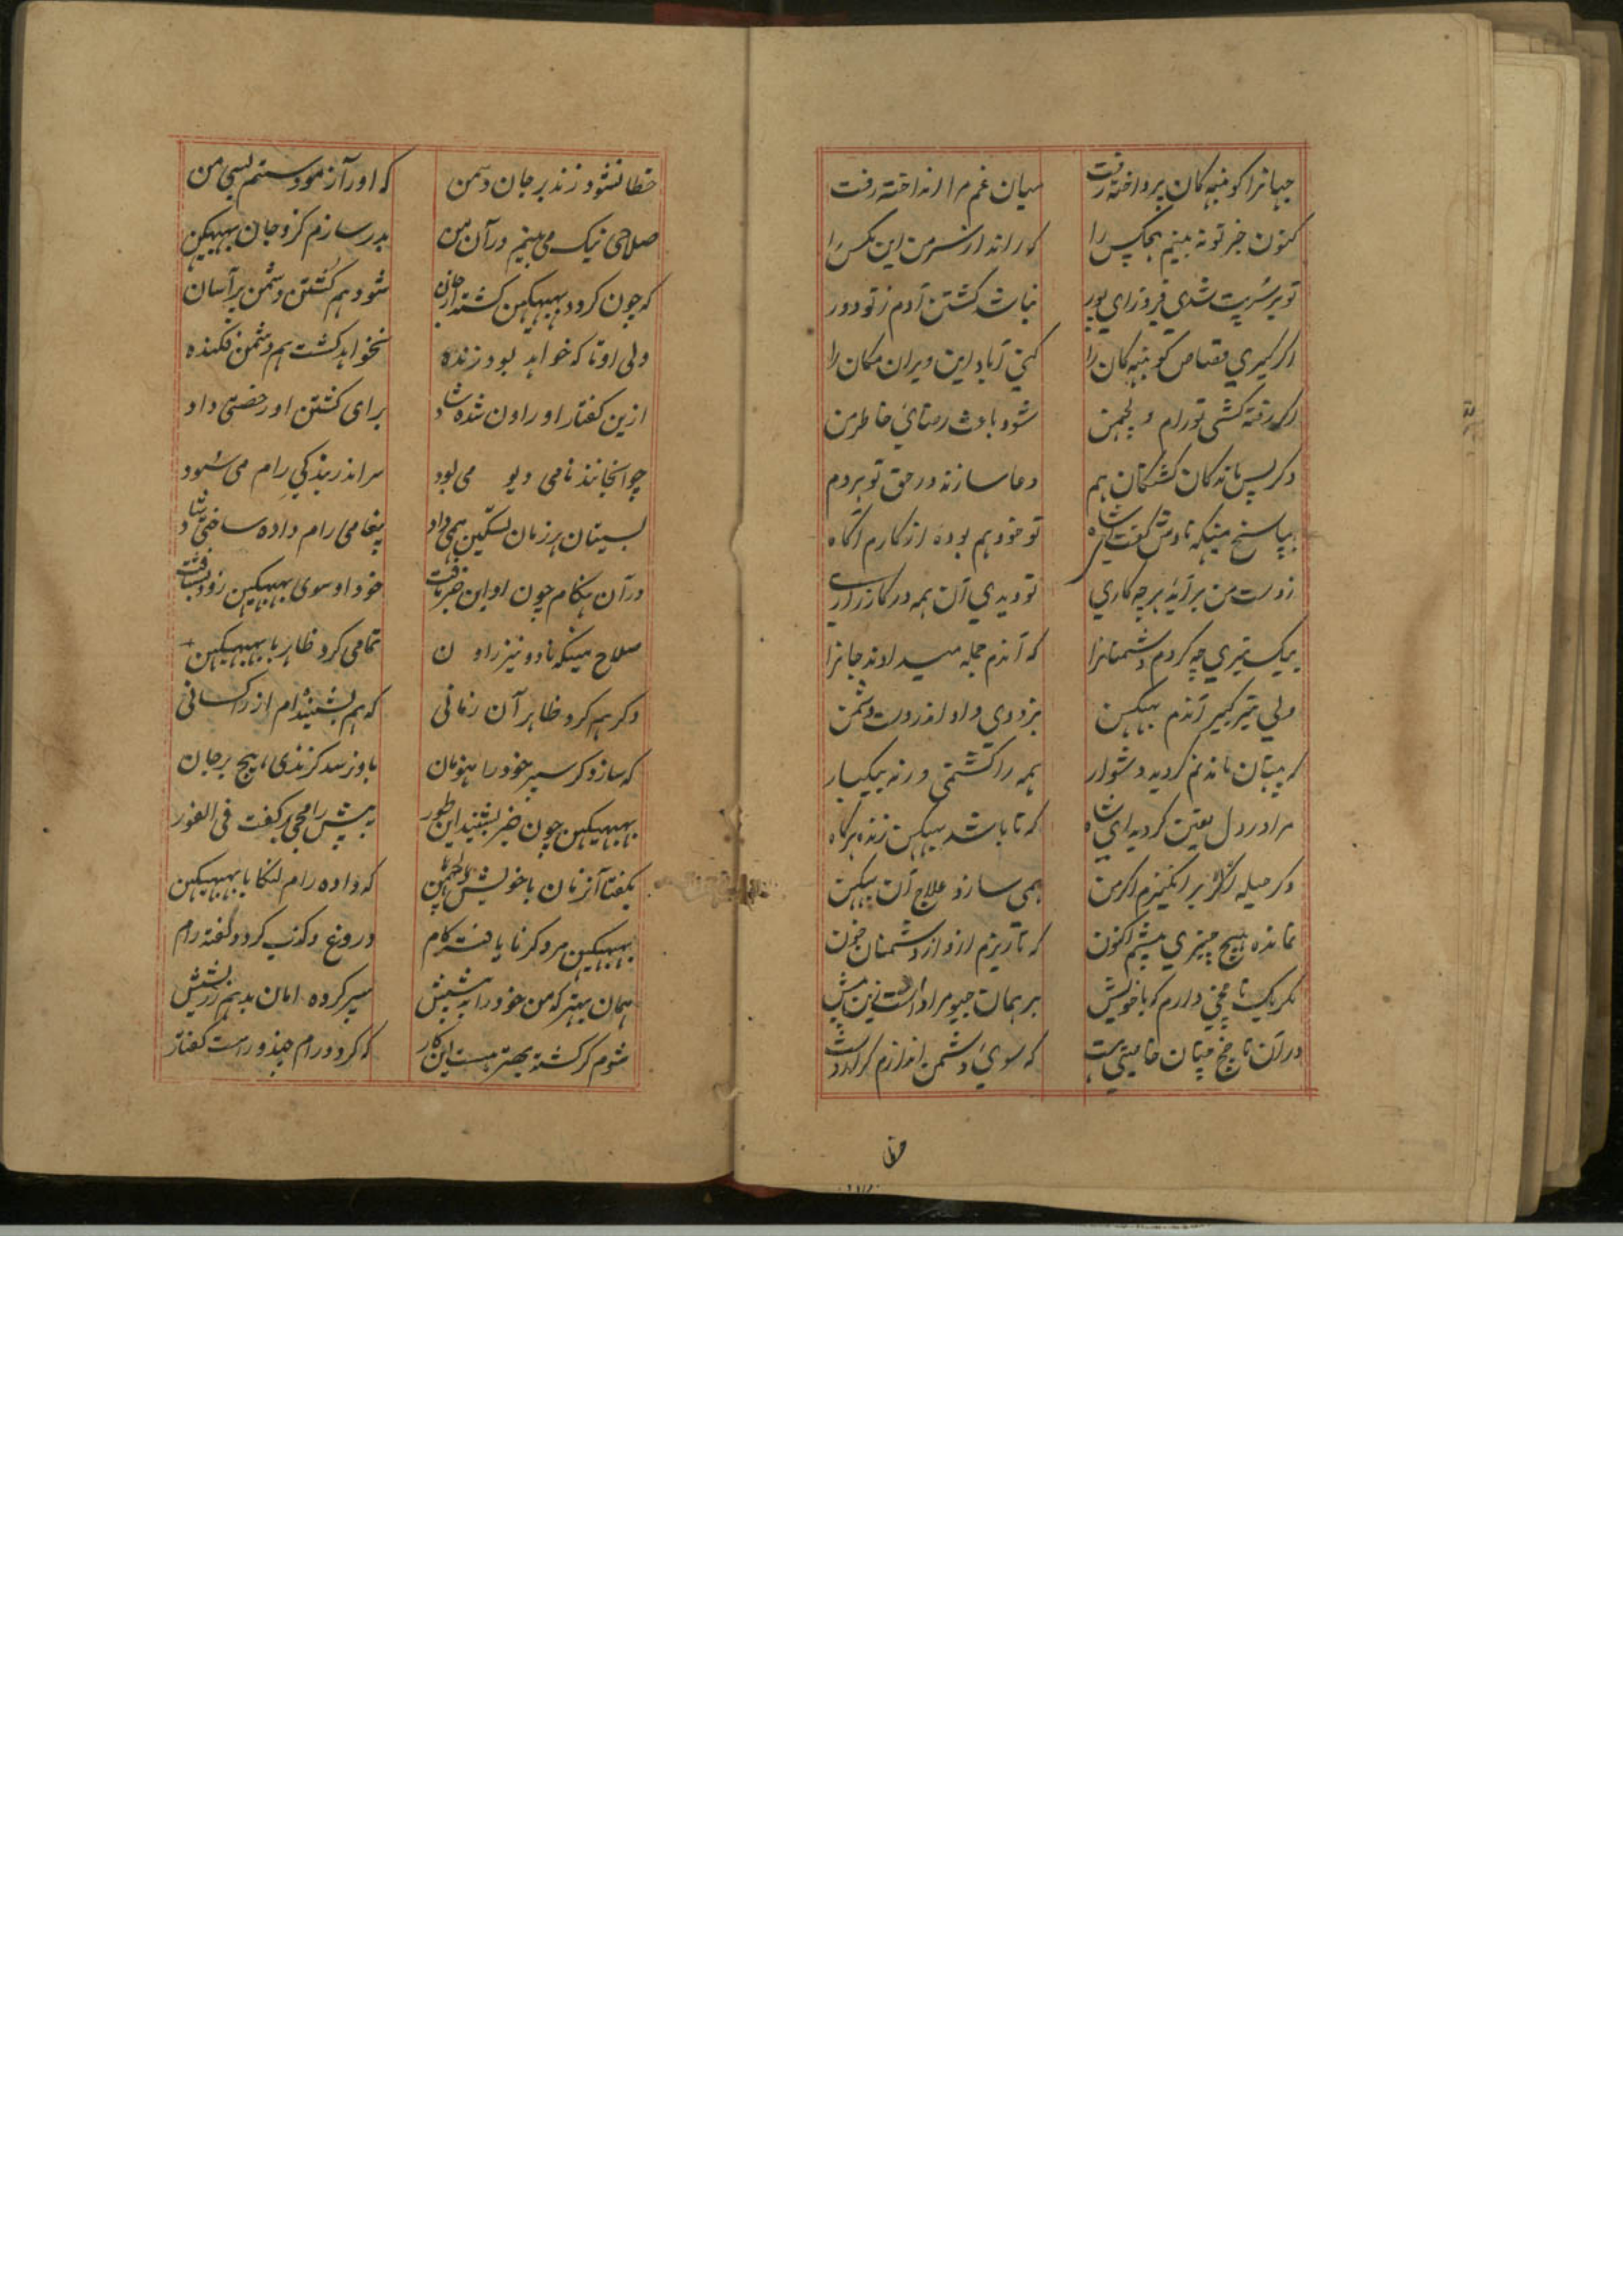 جهانرا کونبهه کان پرداخته رفت میان غم مرا انداخته رفت
کنون جز تو نه بینم هیچکس را که راند از سر من این مکس را
تو بر سرپت شدی فیروز ای پور نباشد کشتن آدم ز تو دور
اکر کیری قصاص کونبهه کان را کنی آباد این ویران مکان را
اکر رفته کشی تو رام و لچمن شود باعث رضای خاطر من
دکر پس ماندکان کشتکان هم دعا سازند در حق تو هر دم
بپاسخ میکهه نادش کفت شاه تو خود هم بوده از کارم آکاه
ز دست من بر آید هر چه کاری تو دیدی آن همه در کارزاری
بیک تیری چه کردم دشمنانرا که آندم جمله میدادند جانرا
ولی تیر کبیر آندم بهبیکن بزودی داد اندر دست دشمن
همه را کشتمی ورنه بیکبار
مرا در دل یقین کردید ای شاه که تا باشد بهبیکن زنده هرکاه
دکر حیله اکر بر انکیزم اکر من همی سازد علاج آن بهبیکن
نمانده هیچ چیزی پیشم اکنون که تا ریزم ازو از دشمنان خون
مکر یک دارم که با خویش برهمان
در آن خاصیتی هست که سوی دشمن اندازم
خطا نشود زند بر جان دشمن که اورا آزمودستم بسی من
صلاحی نیک می بینم در آن من بدر سازم کزو جان بهبیکن
که چون کردد بهبیکن کشته از جان شود هم کشتن دشمن بر آسان
ولی او تا که خواهد بود زنده نخواهد کشت هم دشمن فکنده
ازین کفتار او راون شده شاد برای کشتن او رخصتی داد
چو آنجا نند نامی دیو می بود سر اندر بندکی رام می سود
بسیتا هر زمان تسکین همی داد پیغامی رام داده ساختی شاد
در آن هنکام چون او این خبر یافت خود او سوی بهبیکن زود بشتافت
صلاح میکهه ناد و نیز راون تمامی کرد ظاهر با بهبیکن
دکر هم کرد ظاهر آن زمانی که هم بشنیده ام از راکسانی
که سازد کر سپر خود را هنومان باو نرسد کزندی هیچ بر جان
بهبیکن چون خبر بشنید این طور به پیش رامچی بر کفت فی الفور
بکفتا آنزمان با خویش لچمن که داده رام لنکا با بهبیکن
بهبیکن مرد کر نا یافته کام دروغ و کذب کردد کفته رام
همان بهتر که من خود را به پیشش سپر کرده امان بدهم ز نیشش
شوم کر کشته بهتر هست این کار که کردد رام چندر راست کفتار